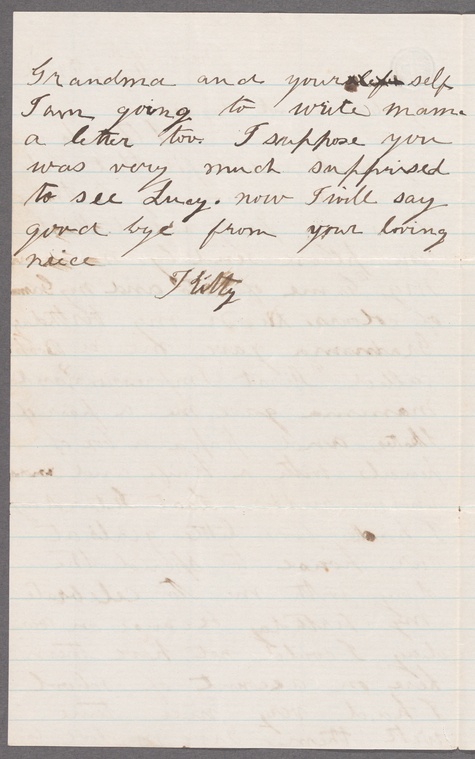 Grandma and your self
I am going to write mama
a letter too. I suppose you
was very much supprised
to see Lucy. now I will say
good bye from your loving
neice
Kitty